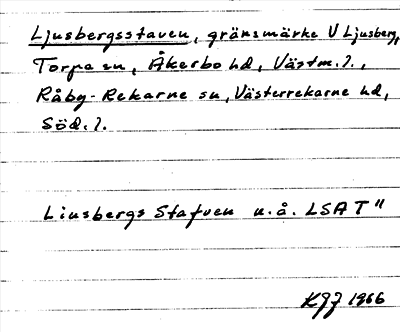 Ljusbergsstaven, gränsmärke V Ljusberg,
Torpa sn, Åkerbo hd, Västm. l.,
Råby-Rekarne sn, Västerrekarne hd,
Söd. l.
Liusbergs Stafuen u.å. LSA T"
KGJ 1966